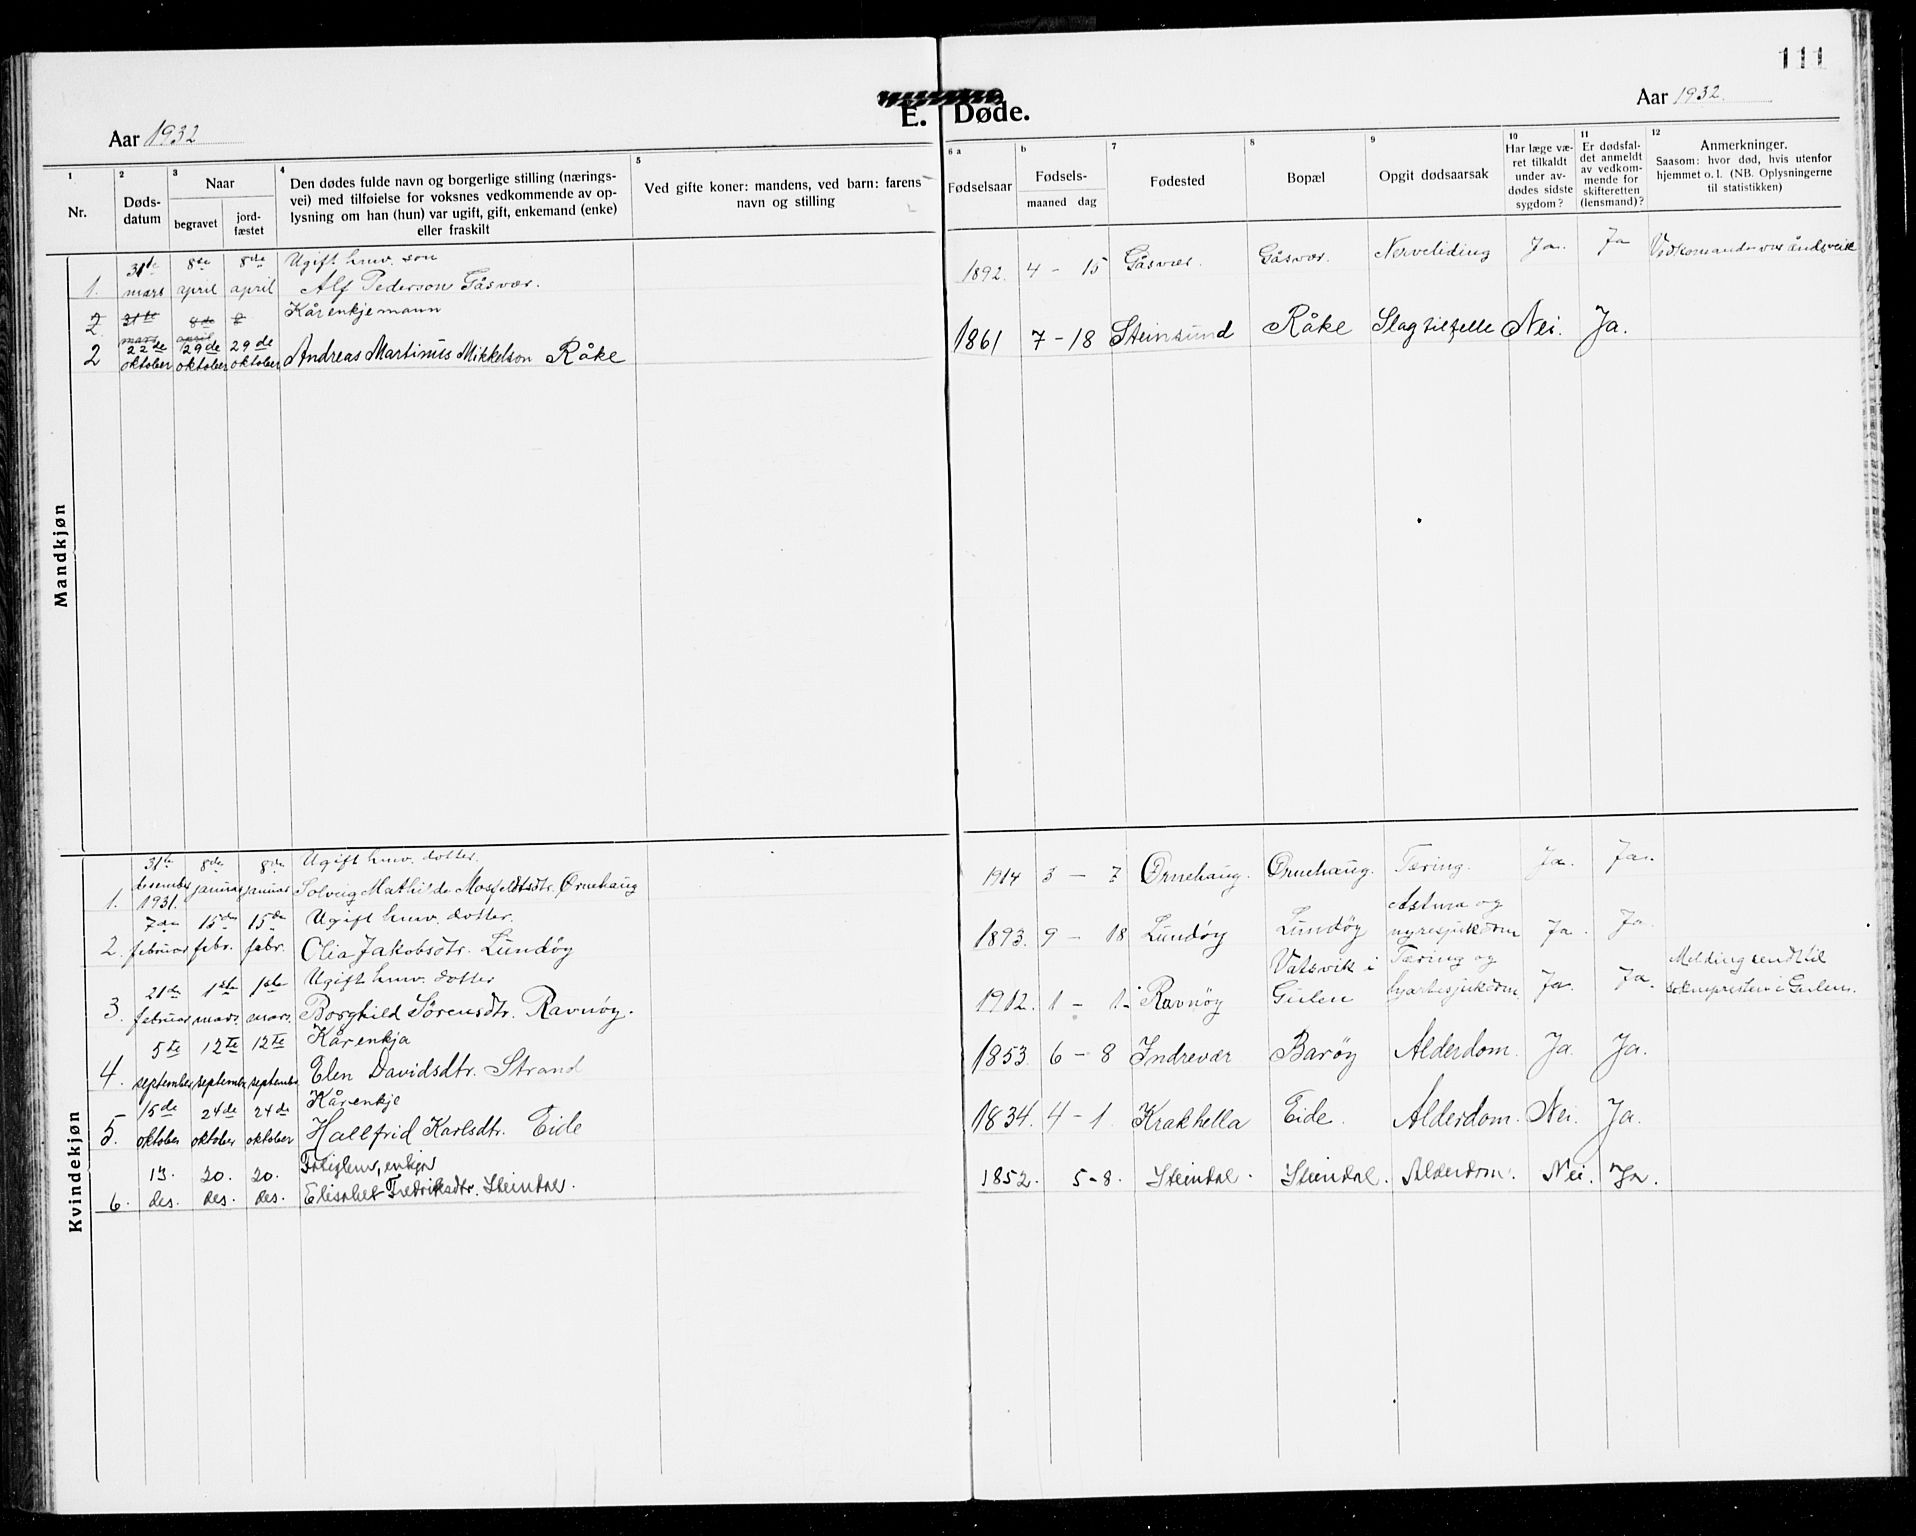 111
E. Døde.
Aar 1932
Aar 1932.
1
2
3
4
5
6 a
b
7
8
9
10
11
12
Nr.
Døds-
datum
Naar
begravet
jord-
fæstet
Den dødes fulde navn og borgerlige stilling (nærings-
vei) med tilføielse for voksnes vedkommende av op-
lysning om han (hun) var ugift, gift, enkemand (enke)
eller fraskilt
Ved gifte koner: mandens, ved barn: farens
navn og stilling
Fødselsaar
Fødsels-
maaned dag
Fødested
Bopæl
Opgit dødsaarsak
Har læge væ-
ret tilkaldt
under av-
dødes sidste
sygdom?
Er dødsfal-
det anmeldt
av vedkom-
mende for
skifteretten
(lensmand)?
Anmerkninger.
Saasom: hvor død, hvis utenfor
hjemmet o. l. (NB. Oplysningerne
til statistikken)
Mandkjøn
31te 8de 8de Ugift huv. son
1. mars april april Alf Pederson Gåsvær. 1892. 4 - 15 Gåsvær. Gåsvær. Nerveliding Ja. Ja Vedkomande var åndsveik
2 31te 8de 8 Kårenkjemann
mars april
22de 29de 29de
2 oktober oktober oktober Andreas Martinus Mikkelson Råke 1861 7 - 18 Steinsund Råke Slagtilfelle Nei. Ja.
Kvindekjøn
31te 8de 8de Ugift huv. dotter.
desember januar januar Solveig Mathilde Mosfeldtsdtr. Ørnehaug 1914 3 - 7 Ørnehaug. Ørnehaug. Tæring. Ja. Ja.
1. 1931.
7de 15de 15de Ugift huv. dotter. Astma og
2. februar febr. febr. Olia Jakobsdtr. Lundöy 1893. 9 - 18 Lundöy Lundöy nyresjukdom Ja. Ja.
21de 1ste 1ste Ugift huv. dotter Vatsvik i Tæring og Melding sendt til
3. februar mars. mars. Borghild Sörensdtr. Ravnöy. 1912. 1 - 1. Ravnöy Gulen hjartesjukdom Ja. Ja. soknepresten i Gulen.
5te 12te 12te Kårenkja
4. september september september Elen Davidsdtr. Strand 1853 6 - 8 Indrevær Baröy Alderdom. Ja. Ja.
15de 24de 24de Kårenkje
5. oktober oktober oktober Hallfrid Karlsdtr. Eide 1834. 4 - 1. Krakhella Eide. Alderdom. Nei. Ja.
13. 20. 20. Fatiglem, enkja
6. des. des. des. Elisabet Fredriksdtr. Steindal. 1852. 5-8. Steindal. Steindal. Alderdom. Nei. Ja.